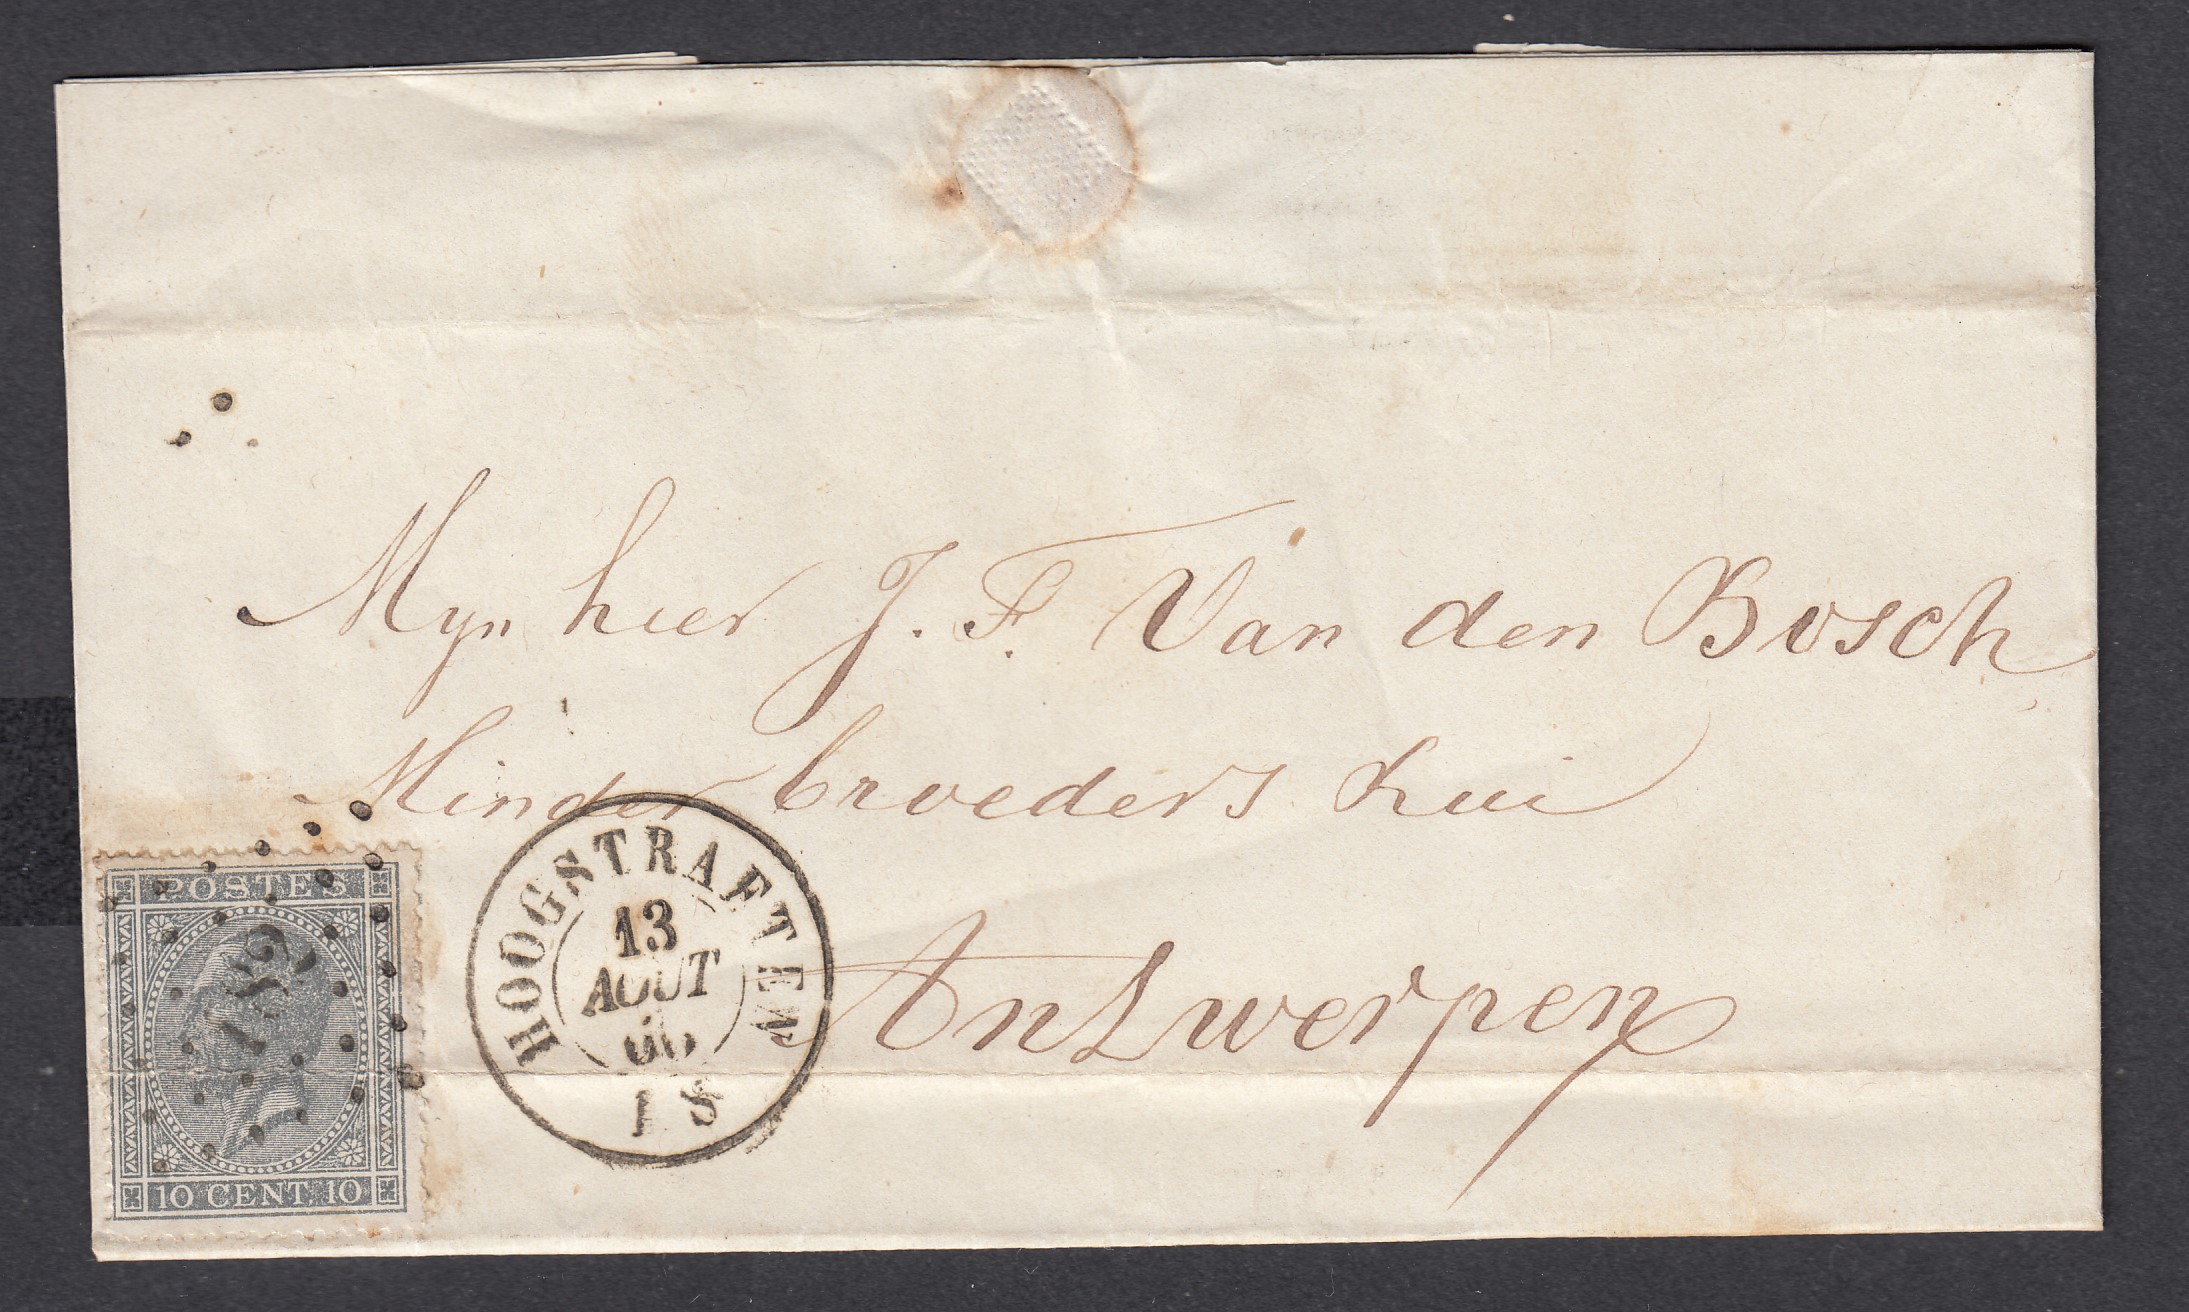 Mynhier J. F. Van den Bosch
Minderbroeders Rui
Antwerpen
HOOGSTRAETEN
13
AOUT
66
1 S
POSTES
182
10 CENT. 10